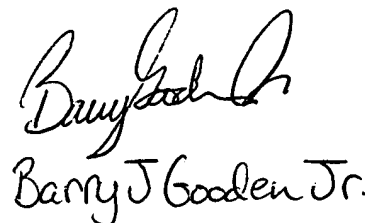 Barry Gooden Jr
Barry J Gooden Jr.